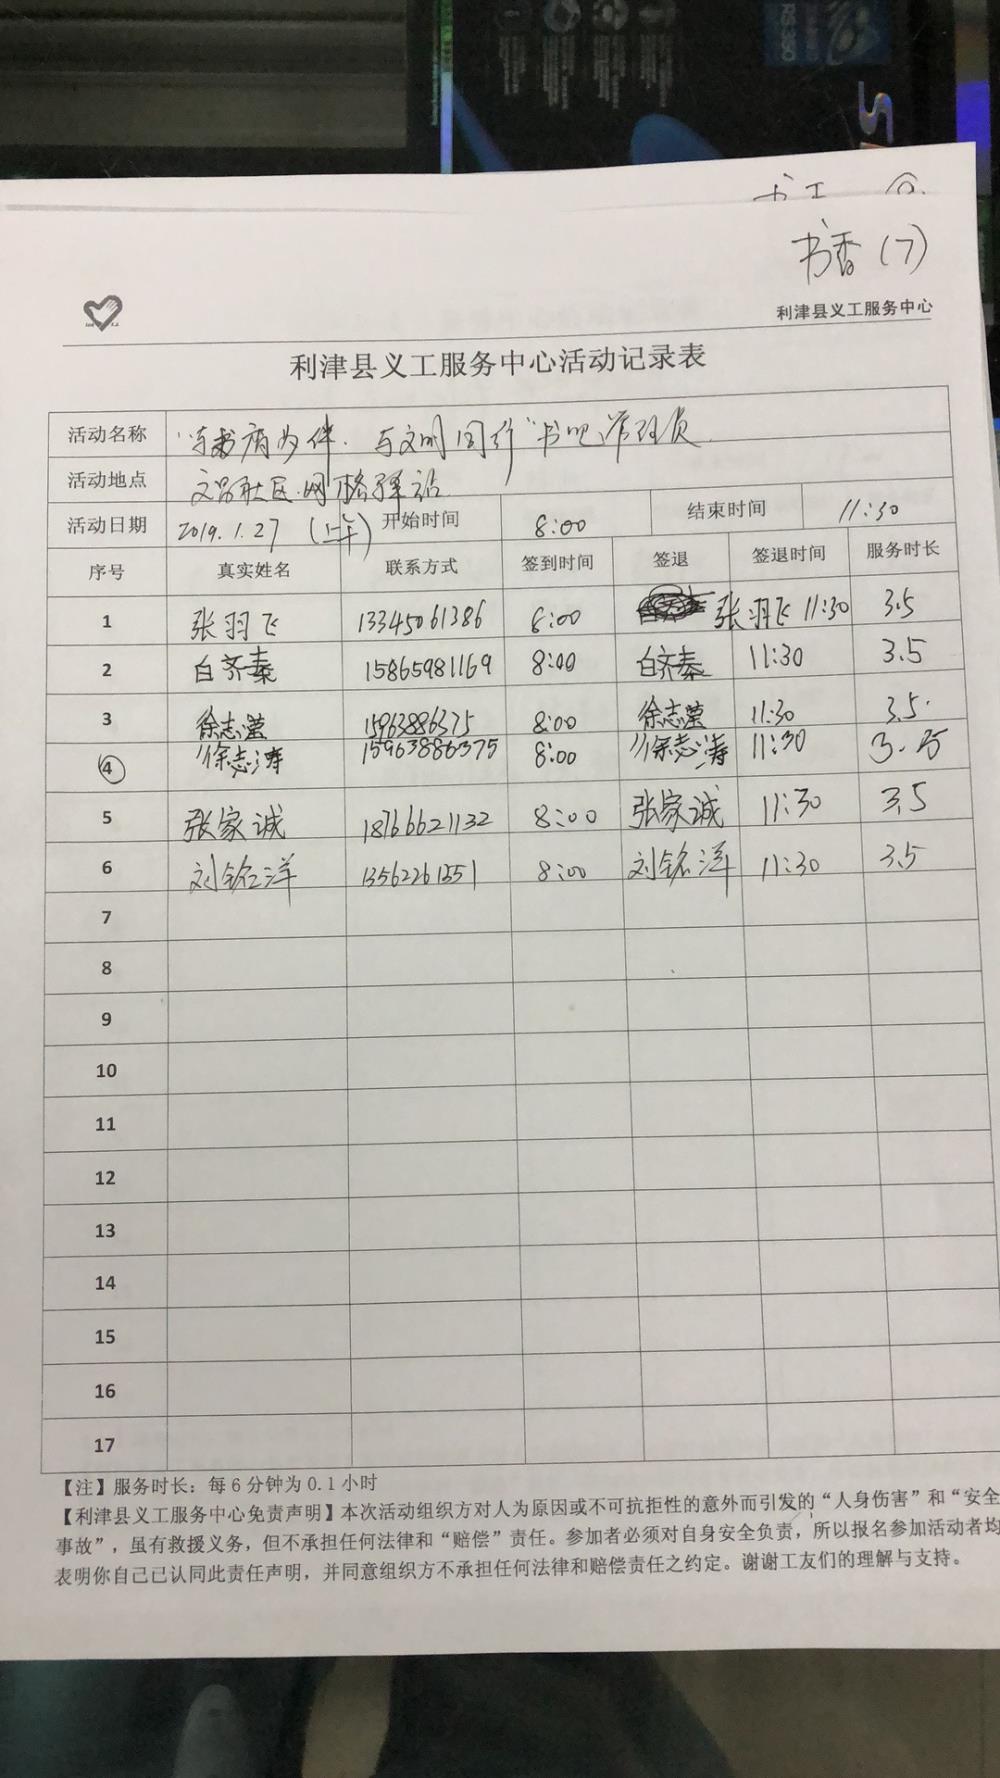 RS 350
书香(7)
利津县义工服务中心
利津县义工服务中心活动记录表
活动名称 "与书香为伴.与文明同行"书吧管理员
活动地点 文昌社区.网格驿站
活动日期 2019.1.27 (上午) 开始时间 8:00 结束时间 11:30
序号 真实姓名 联系方式 签到时间 签退 签退时间 服务时长
1 张羽飞 13345061386 8:00 张羽飞 11:30 3.5
2 白齐秦 15865981169 8:00 白齐秦 11:30 3.5
3 徐志莹 15963886375 8:00 徐志莹 11:30 3.5.
4 徐志涛 15963886375 8:00 徐志涛 11:30 3.5
5 张家诚 18766621132 8:00 张家诚 11:30 3.5
6 刘铭洋 13562261351 8:00 刘铭洋 11:30 3.5
7
8
9
10
11
12
13
14
15
16
17
【注】服务时长：每6分钟为0.1小时
【利津县义工服务中心免责声明】本次活动组织方对人为原因或不可抗拒性的意外而引发的“人身伤害”和“安全
事故”，虽有救援义务，但不承担任何法律和“赔偿”责任。参加者必须对自身安全负责，所以报名参加活动者均
表明你自己已认同此责任声明，并同意组织方不承担任何法律和赔偿责任之约定。谢谢工友们的理解与支持。